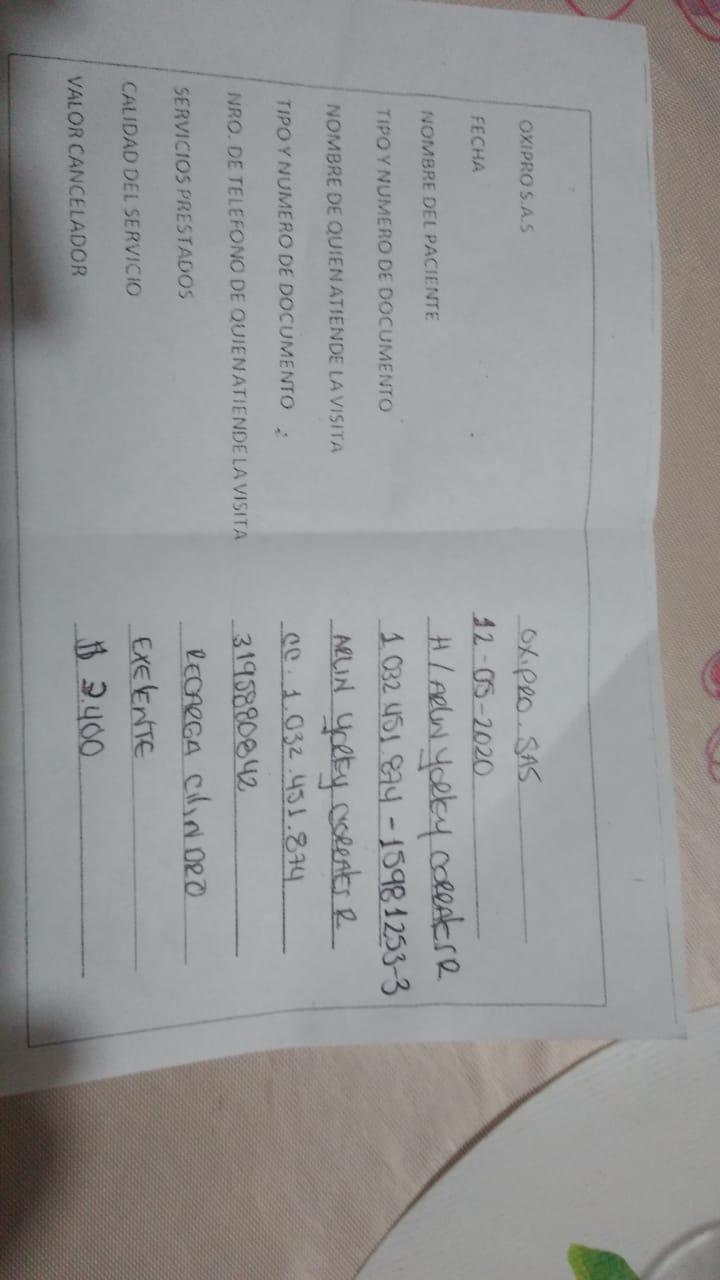 OXIPRO S.A.S OXIPRO. SAS
FECHA 12-05-2020
NOMBRE DEL PACIENTE H/ ARLIN
TIPO Y NUMERO DE DOCUMENTO 1 032 451 874 - 15981253-3
NOMBRE DE QUIEN ATIENDE LA VISITA ARLIN
TIPO Y NUMERO DE DOCUMENTO CC. 1.032.451.874
NRO. DE TELEFONO DE QUIEN ATIENDE LA VISITA 3195880842
SERVICIOS PRESTADOS RECARGA CILINDRO
CALIDAD DEL SERVICIO EXELENTE
VALOR CANCELADOR $ 2.400